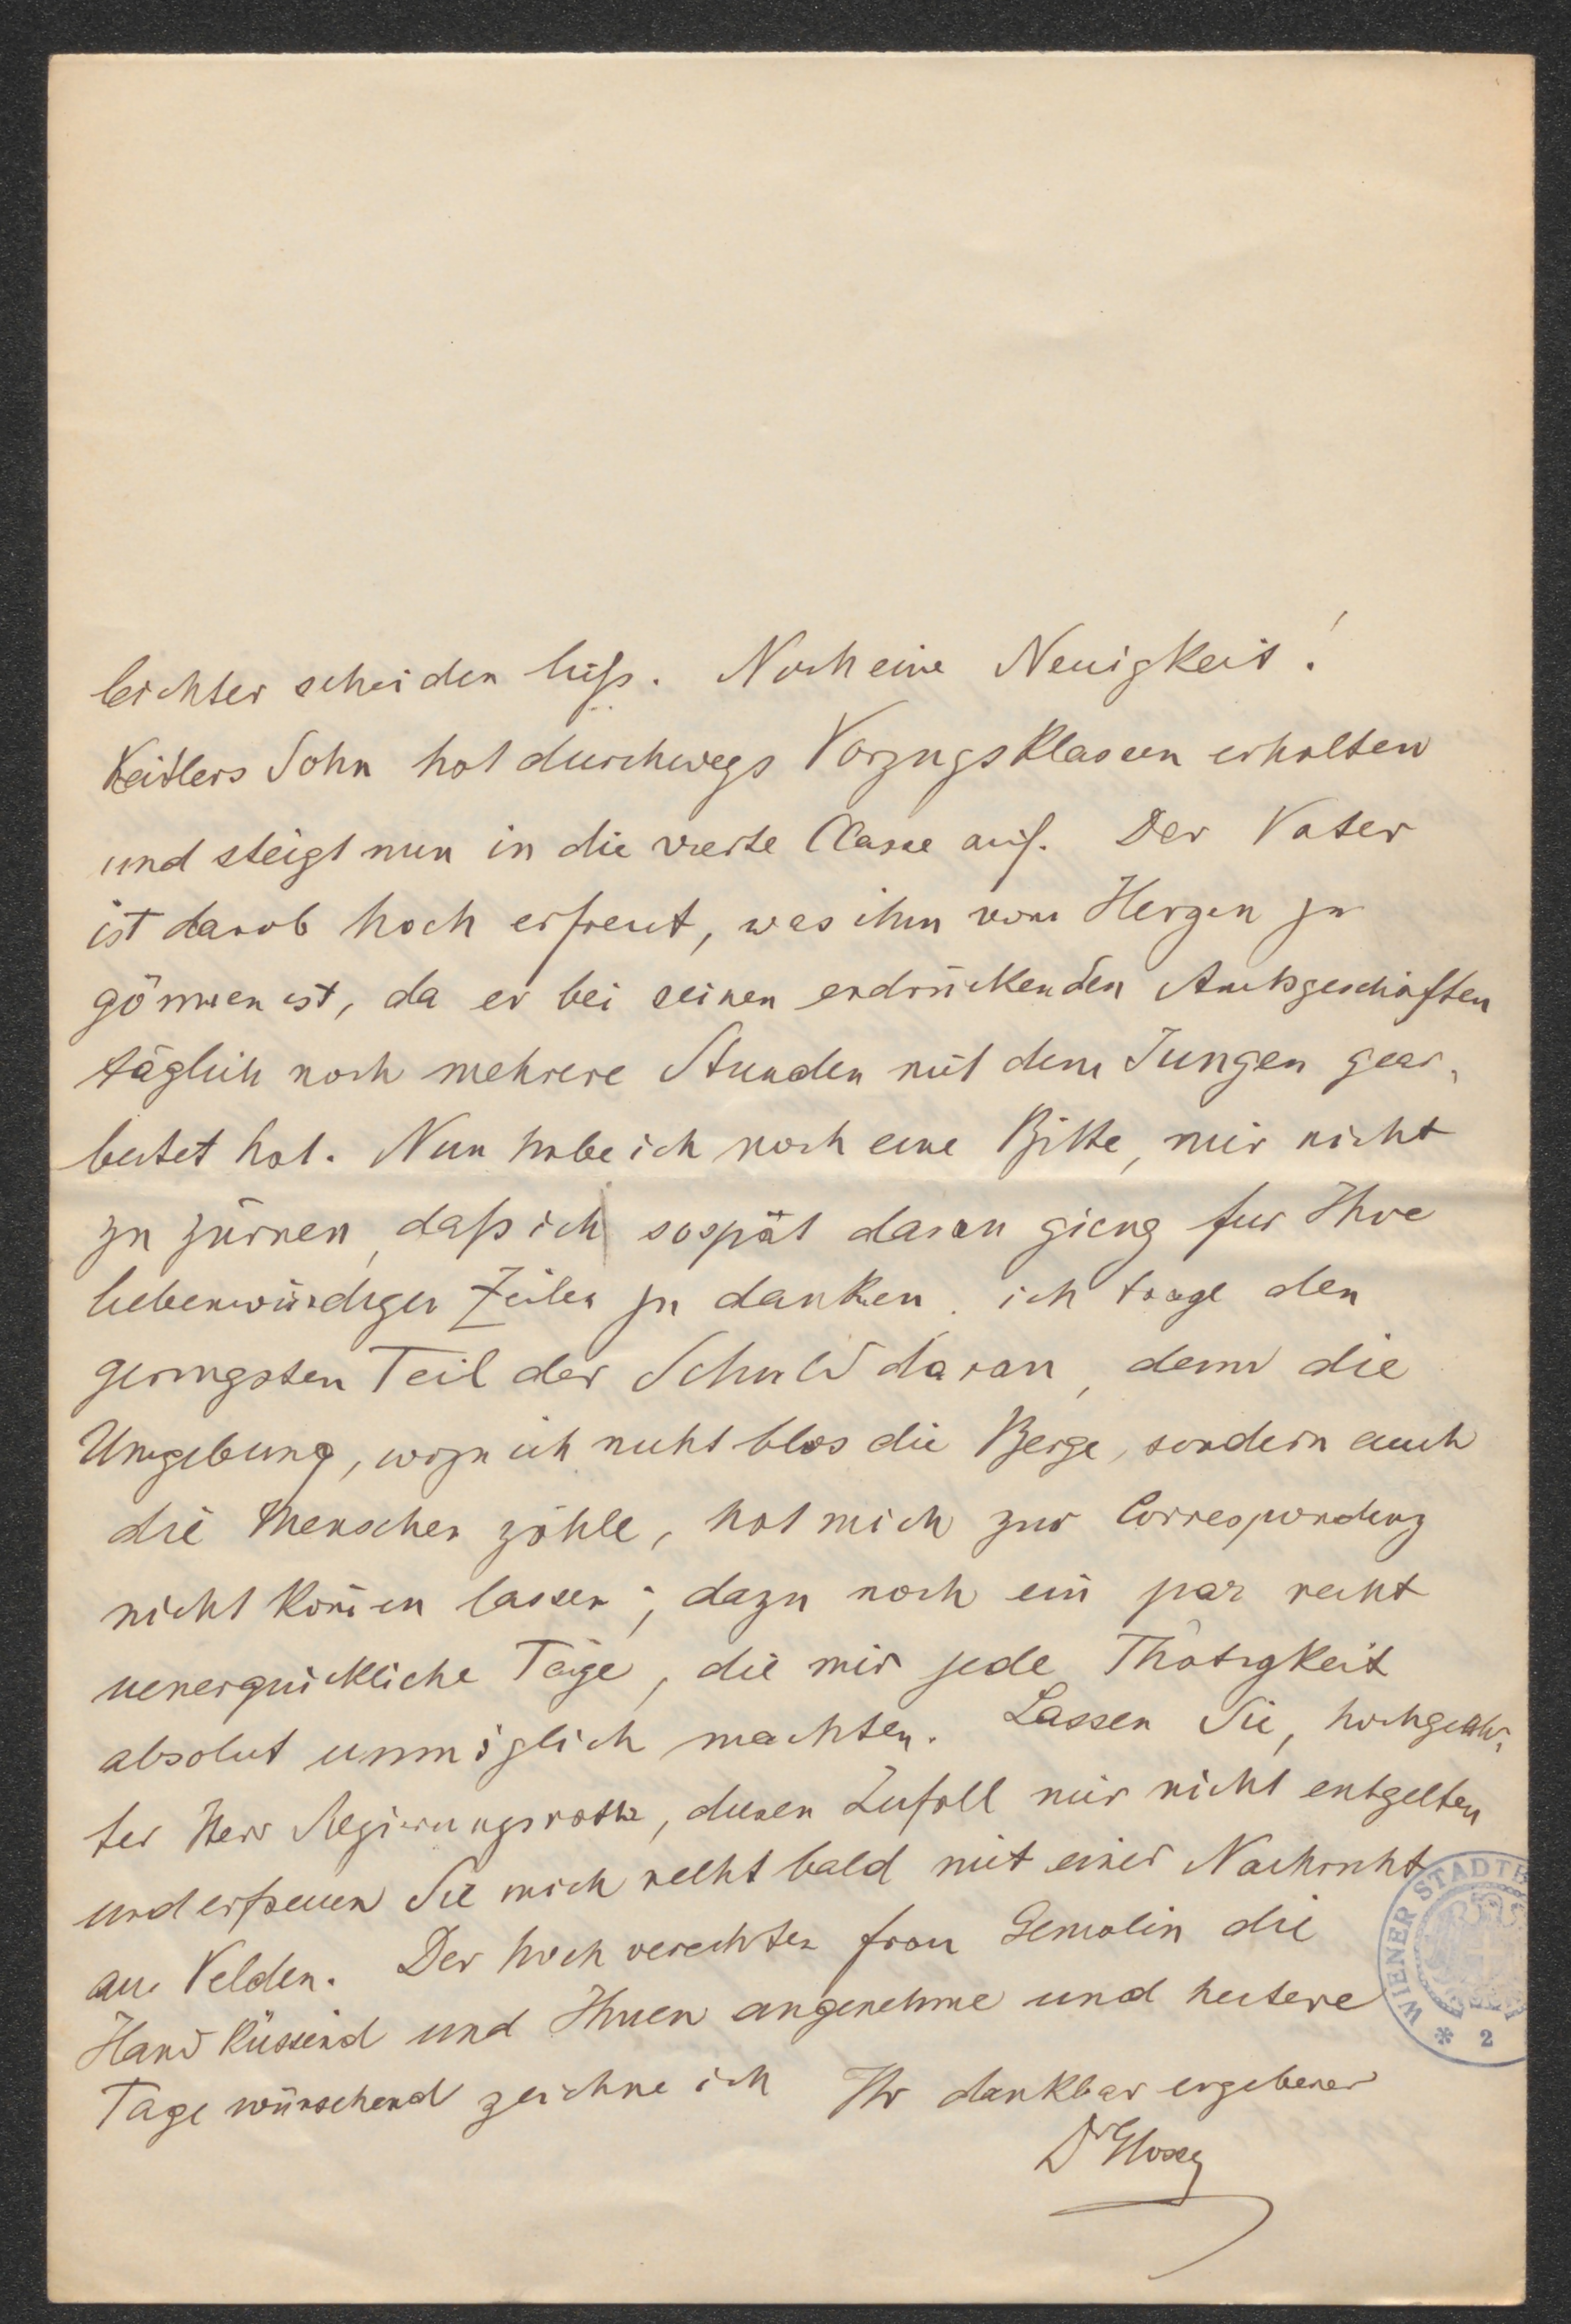 leichter scheiden ließ. Noch eine Neuigkeit!
Keitlers Sohn hat durchwegs Vorzugsklassen erhalten
und steigt nun in die vierte Classe auf. Der Vater
ist darob hoch erfreut, was ihm vom Herzen zu
gönnen ist, da er bei seinen erdrückenden Amtsgeschäften
täglich noch mehrere Stunden mit dem Jungen gear-
beitet hat. Nun habe ich noch eine Bitte, mir nicht
zu zürnen, daß ich so spät daran gieng fur Ihre
liebenswürdigen Zeilen zu danken. ich trage den
geringsten Teil der Schuld daran, denn die
Umgebung, wozu ich nicht blos die Berge, sondern auch
die Menschen zähle, hat mich zur Correspondenz
nicht kom̄en lassen; dazu noch ein par recht
unerquickliche Tage, die mir jede Thätigkeit
absolut unmöglich machten. Lassen Sie, hochgeehr-
ter Herr Regierungsrath, diesen Zufall mir nicht entgelten
und erfreuen Sie mich recht bald mit einer Nachricht
aus Velden. Der hoch verehrten Frau Gemalin die
Hand küssend und Ihnen angenehme und heitere
Tage wünschend zeichne ich Ihr dankbar ergebener
Dr Glossy
WIENER STADTB
* 2